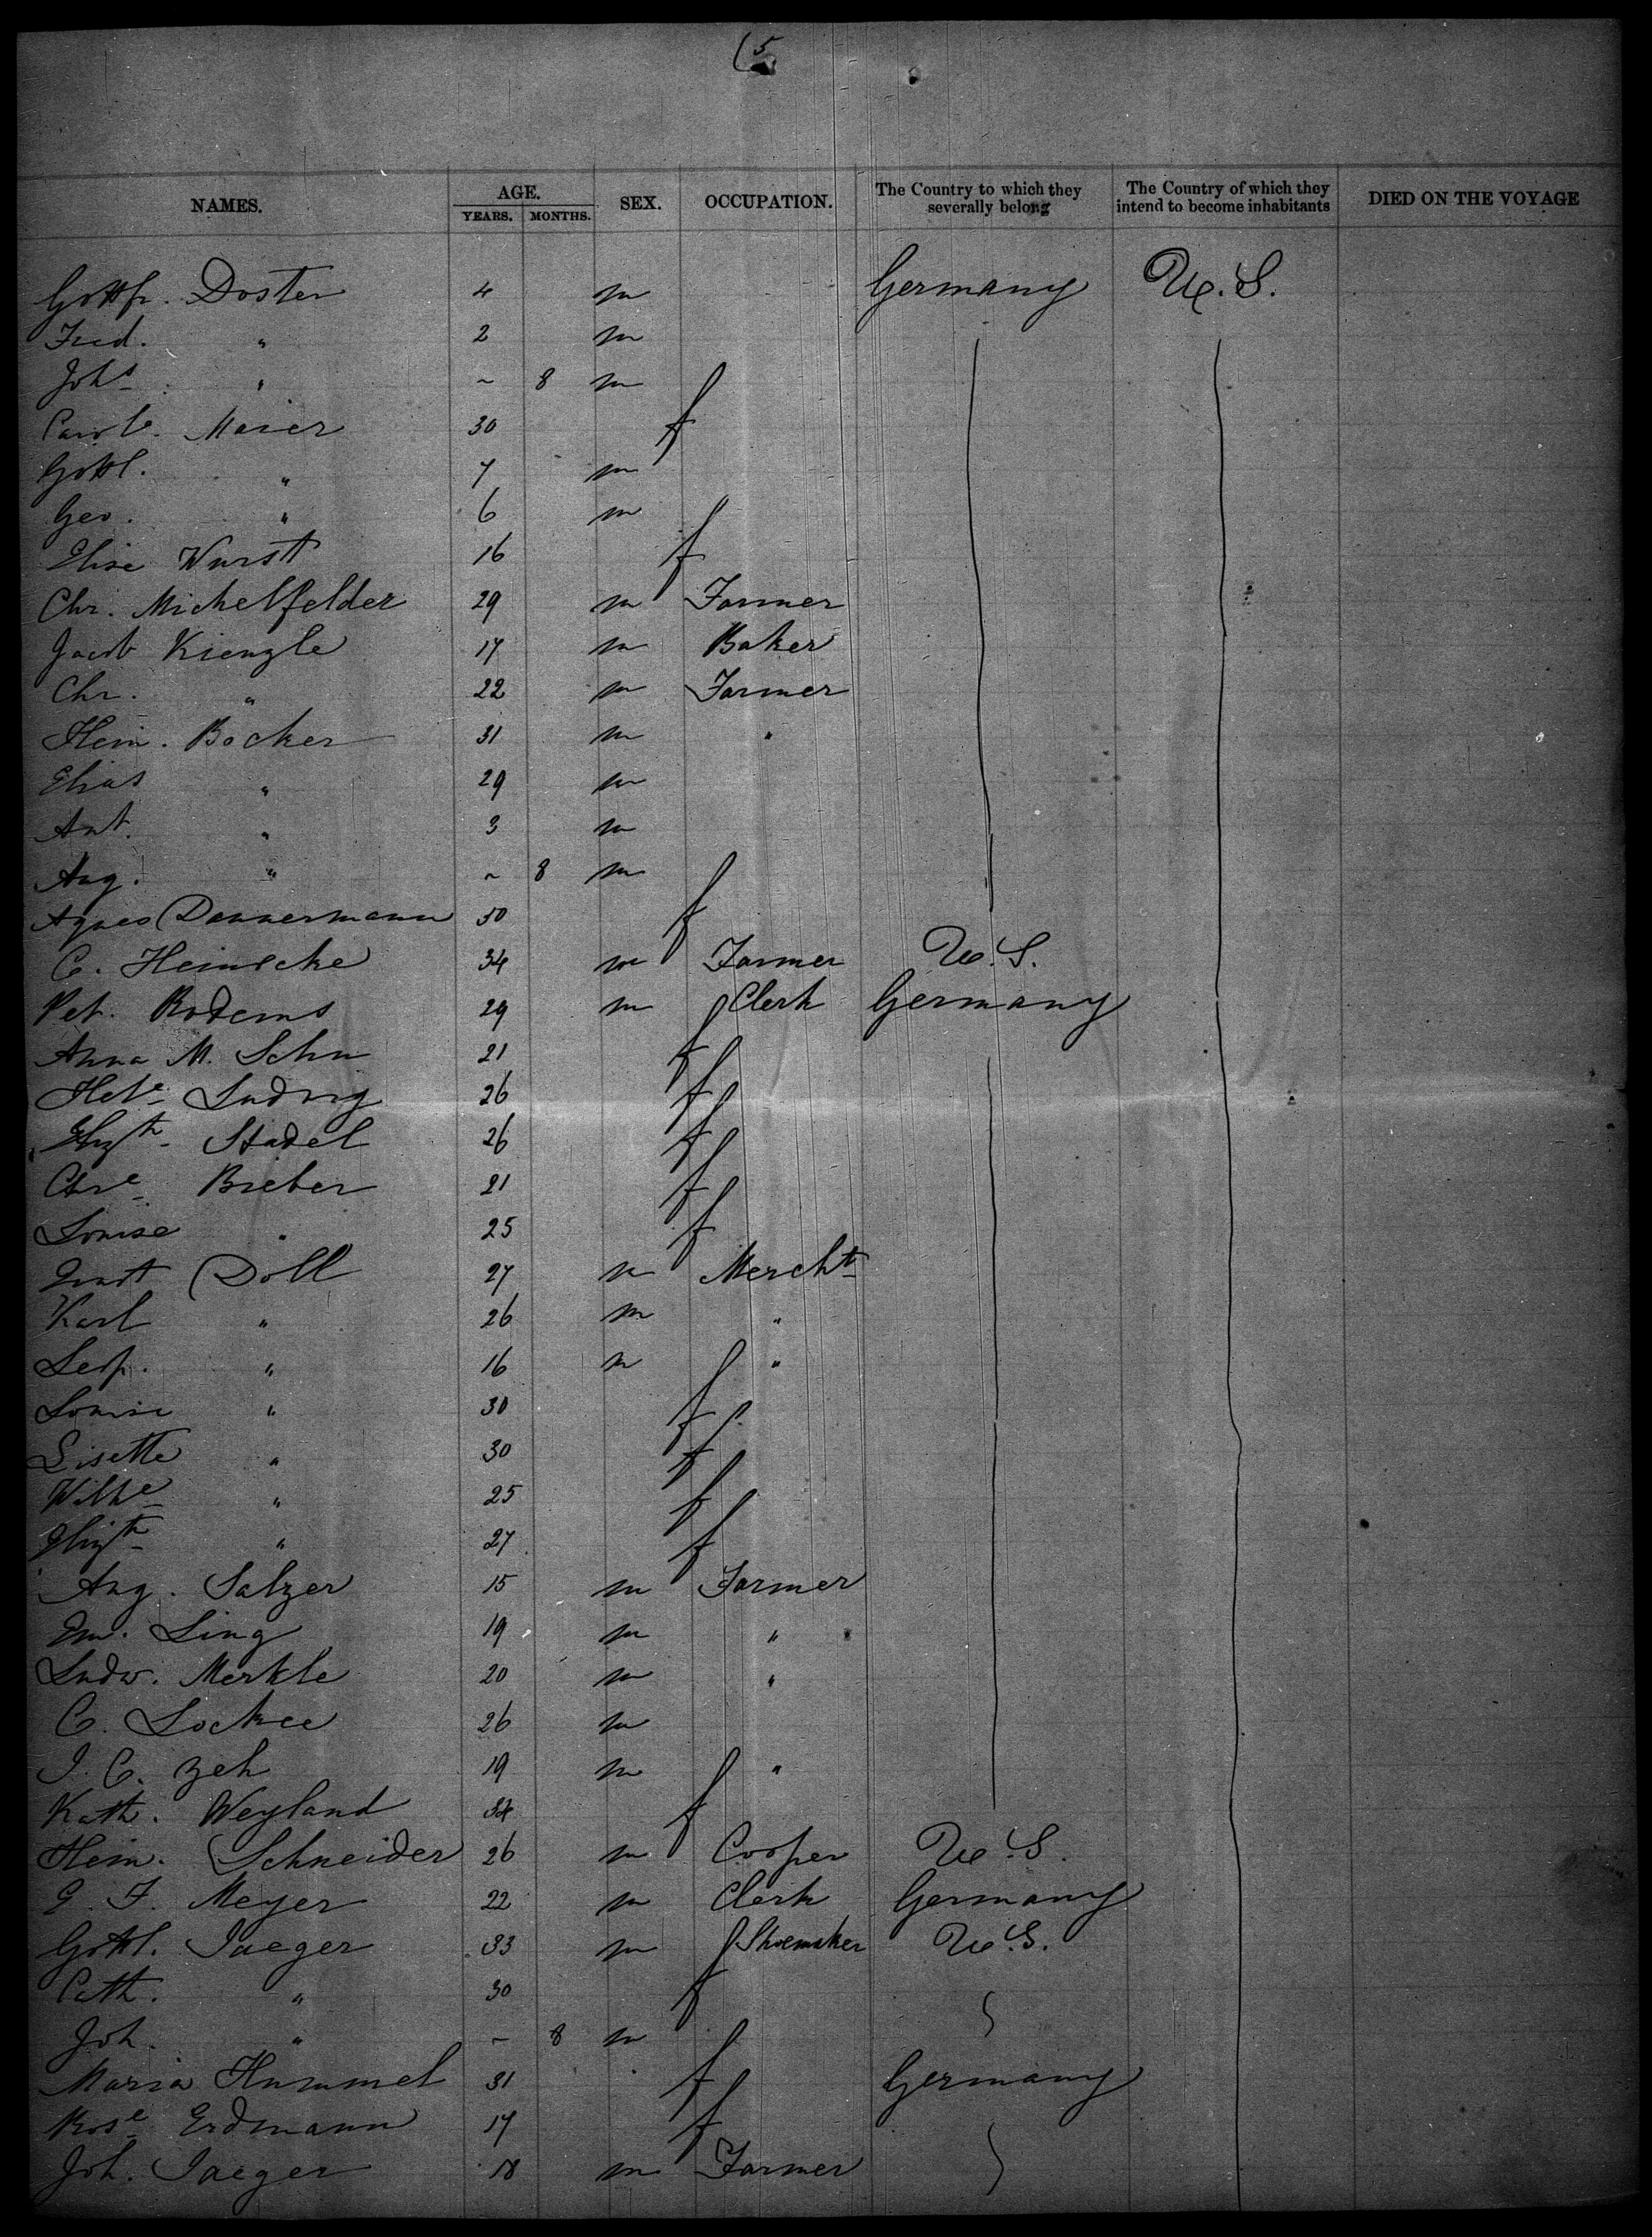 (5
NAMES. AGE. SEX. OCCUPATION. The Country to which they severally belong The Country of which they intend to become inhabitants DIED ON THE VOYAGE
YEARS. MONTHS.
Gottfr. Doster 4 m Germany U.S.
Fred. " 2 m
Johs " ~ 8 m
Carole. Maier 30 f
Gottl. " 7 m
Geo. " 6 m
Elise Wurst 16 f
Chr. Michelfelder 29 m Farmer
Jacob Kienzle 17 m Baker
Chr. " 22 m Farmer
Hein. Bocker 31 m "
Elias " 29 m
Ant. " 3 m
Aug. " ~ 8 m
Agnes Dannermann 50 f
C. Heinecke 34 m Farmer U.S.
Pet. Rodems 29 m Clerk Germany
Anna M. Schu 21 f
Hele Ludwig 26 f
Elizth Stadel 26 f
Chre Bieber 21 f
Louise " 25 f
Ernst Doll 27 m Mercht
Karl " 26 m "
Leop. " 16 m "
Louise " 30 f
Lisette " 30 f
Wilhe " 25 f
Elizth " 27 f
Aug. Salzer 15 m Farmer
Em. Ling 19 m "
Ludw. Merkle 20 m "
C. Lockee 26 m
J. C. Zeh 19 m "
Kath. Weyland 34 f
Hein. Schneider 26 m Cooper U.S.
G. F. Meyer 22 m Clerk Germany
Gottl. Jaeger 33 m Shoemaker U.S.
Cath. " 30 f
Joh. " ~ 8 m
Maria Hummel 31 f Germany
Rose Erdmann 17 f
Joh. Jaeger 18 m Farmer